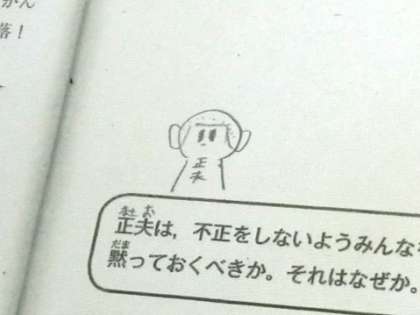 落！
正夫
まさ お
正夫は，不正をしないようみんな
だま
黙っておくべきか。それはなぜか。